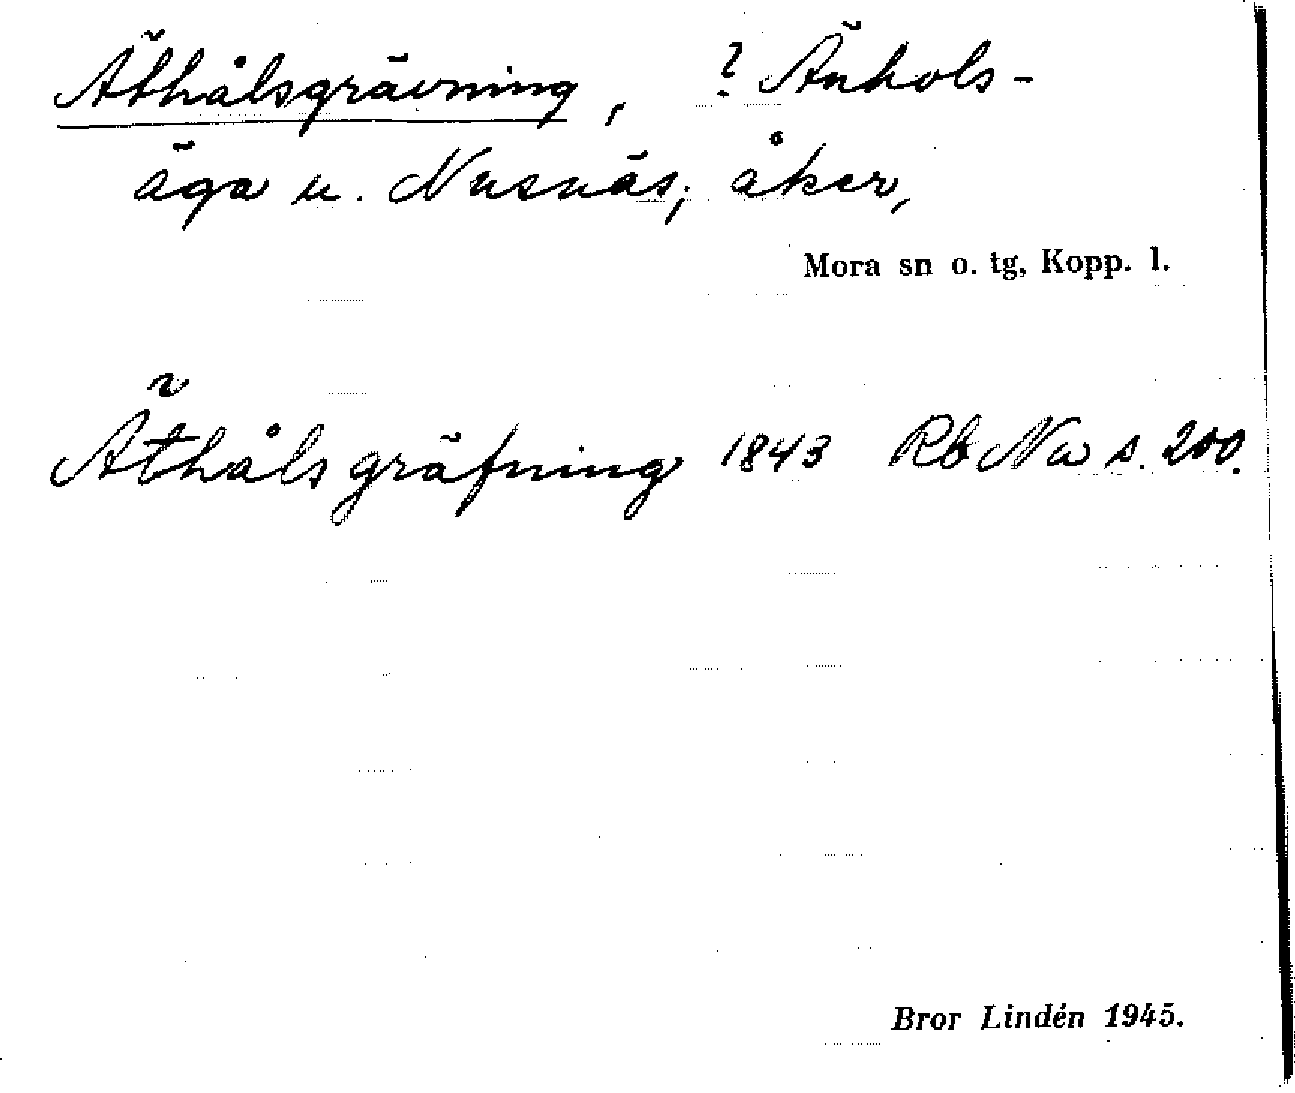 Äthålsgrävning, ? Änhols-
äga u. Nusnäs; åker,
Mora sn o. tg, Kopp. l.
Äthålsgräfning 1843 Rb Na s. 200.
Bror Lindén 1945.